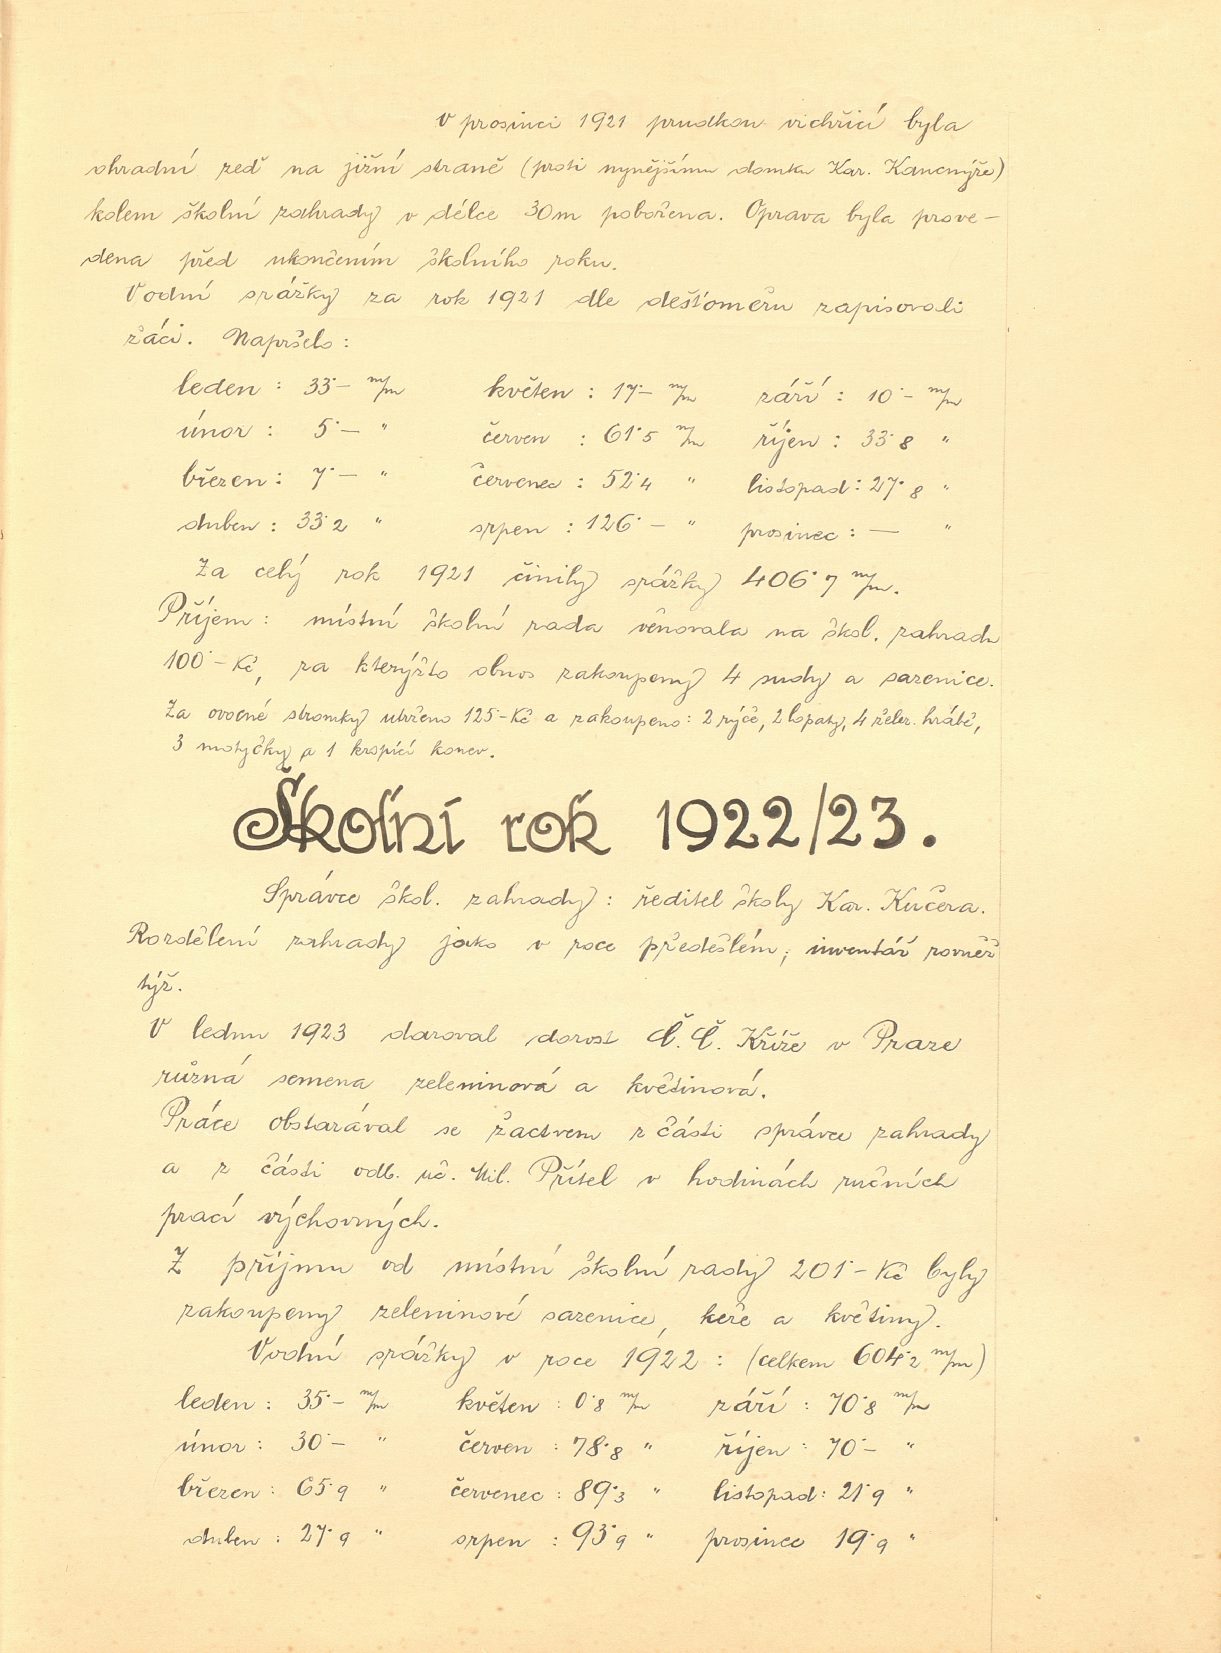 V prosinci 1921 prudkou vichřicí byla
ohradní zeď na jižní straně (proti nynějšímu domku Kar. Kancnýře)
kolem školní zahrady v délce 30 m pobořena. Oprava byla prove–
dena před ukončením školního roku.
Vodní srážky za rok 1921 dle dešťoměru zapisovali
žáci. Napršelo:
leden : 33·– m/m květen : 17·– m/m září : 10·– m/m
únor : 5·– " červen : 61·5 m/m říjen : 33·8 "
březen : 7·– " červenec : 52·4 " listopad : 27·8 "
duben : 33·2 " srpen : 126·– " prosinec : — "
Za celý rok 1921 činily srážky 406·7 m/m.
Příjem : místní školní rada věnovala na škol. zahradu
100·– Kč, za kterýžto obnos zakoupeny 4 sudy a sazenice.
Za ovocné stromky utrženo 125·– Kč a zakoupeno : 2 rýče, 2 lopaty, 4 želez. hrábě,
3 motyčky a 1 kropící konev.
Školní rok 1922/23.
Správce škol. zahrady : ředitel školy Kar. Kučera.
Rozdělení zahrady jako v roce předešlém; inventář rovněž
týž.
V lednu 1923 daroval dorost Č.Č. Kříže v Praze
různá semena zeleninová a květinová.
Práce obstarával se žactvem z části správce zahrady
a z části odb. uč. Mil. Přítel v hodinách ručních
prací výchovných.
Z příjmu od místní školní rady 201·– Kč byly
zakoupeny zeleninové sazenice, keře a květiny.
Vodní srážky v roce 1922 : (celkem 604·2 m/m)
leden : 35·– m/m květen : 0·8 m/m září : 70·8 m/m
únor : 30·– " červen : 78·8 " říjen : 70·– "
březen : 65·9 " červenec : 89·3 " listopad : 21·9 "
duben : 27·9 " srpen : 93·9 " prosinec 19·9 "